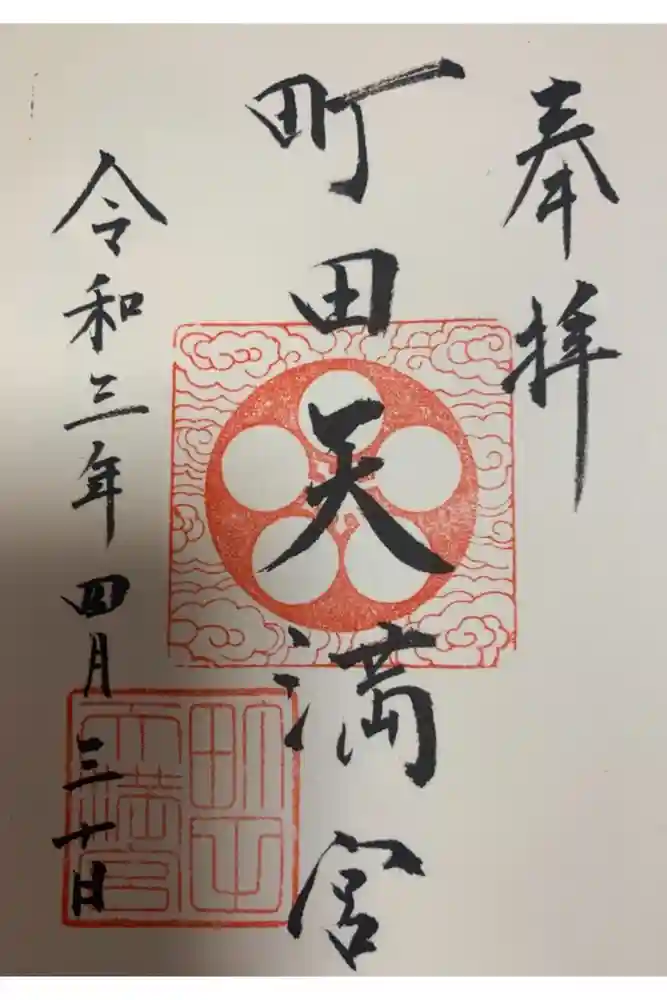 奉拝
町田天満宮
令和三年四月三十日